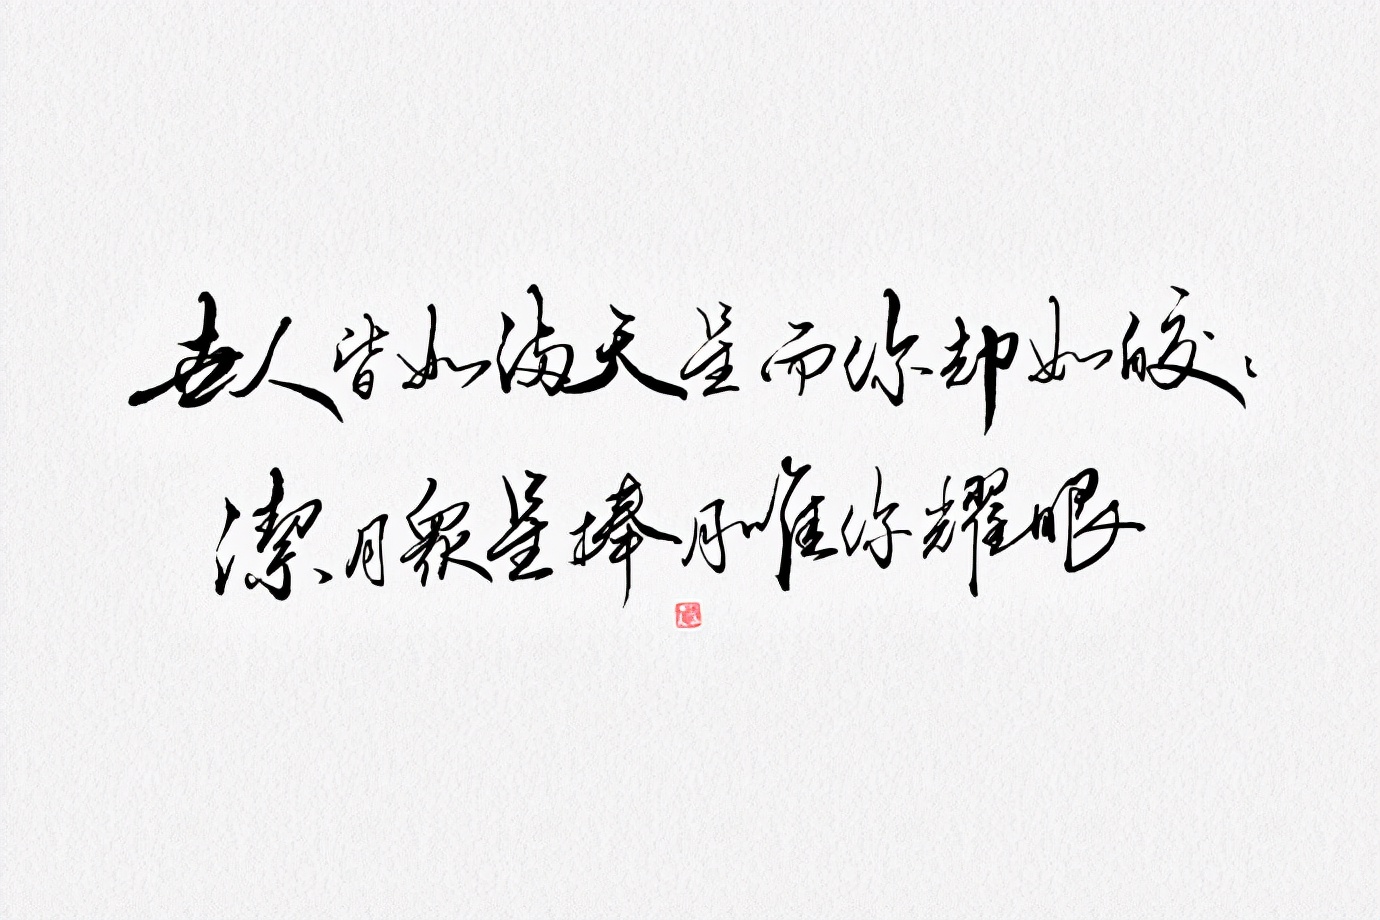 世人皆如滿天星而你却如皎:
潔月衆星捧月唯你耀眼